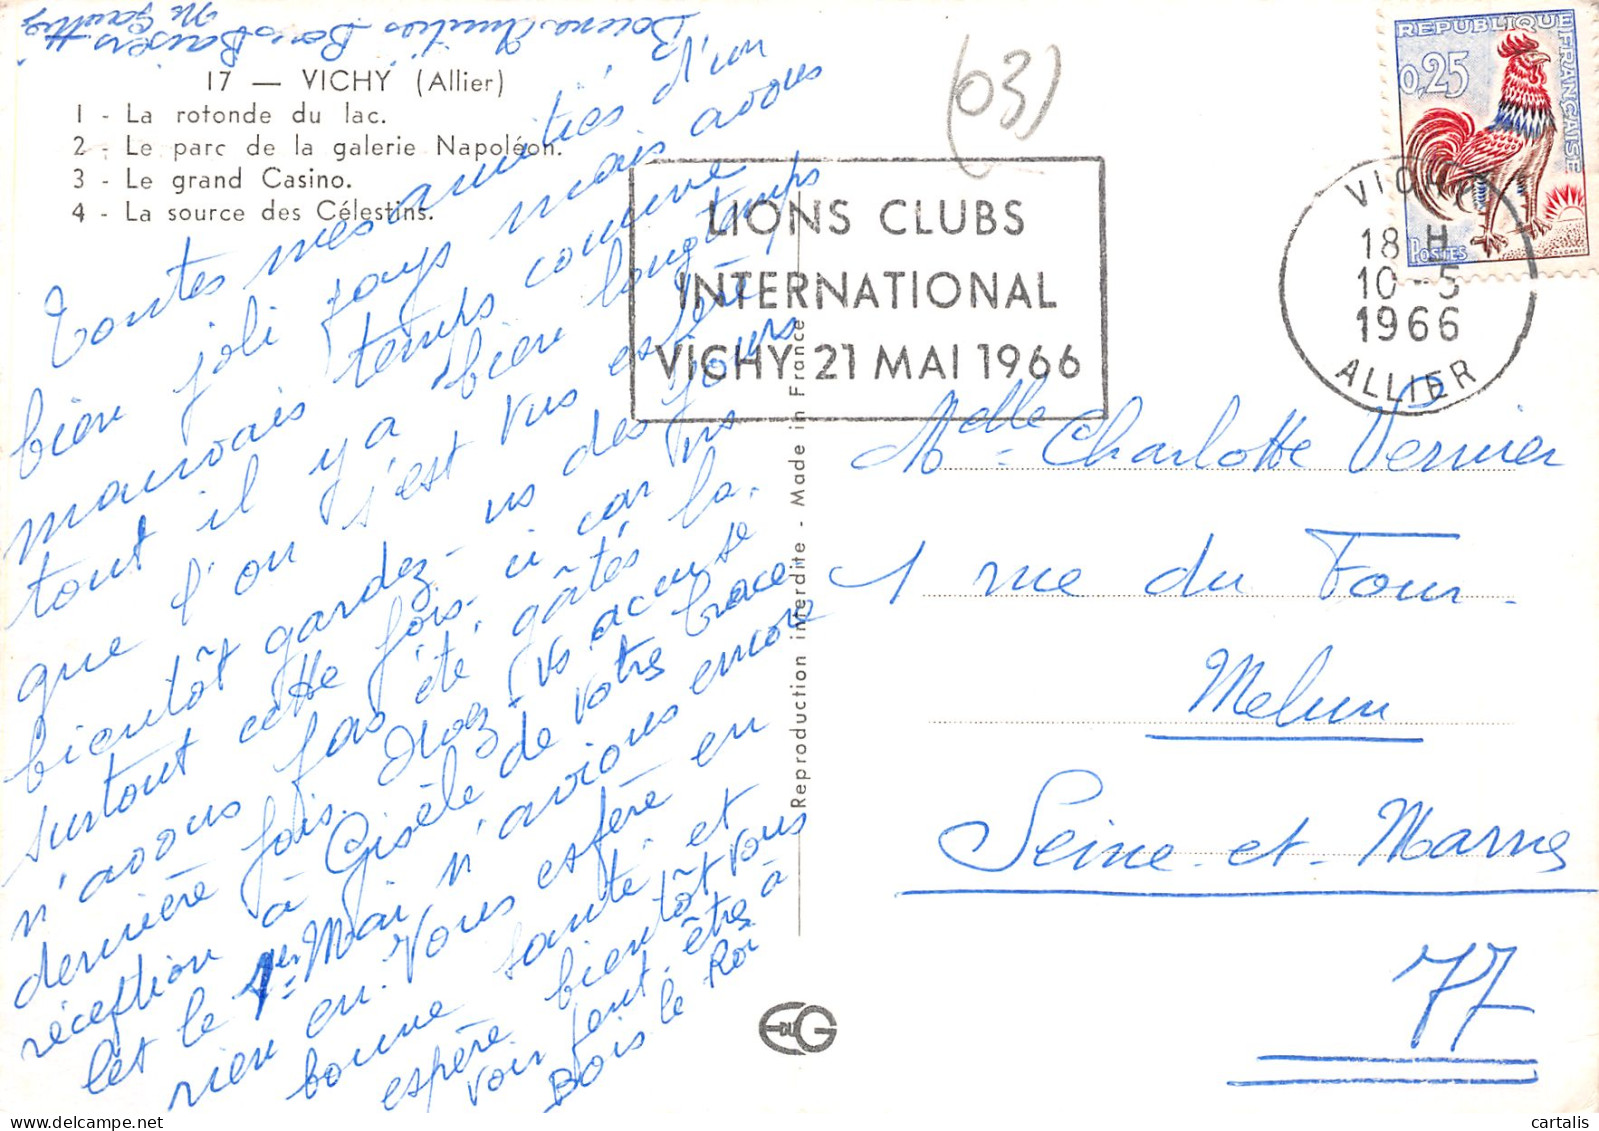 Bonne Amities Bons Baisers
Me Gauthier
17 — VICHY (Allier)
1 - La rotonde du lac.
2 - Le parc de la galerie Napoléon.
3 - Le grand Casino.
4 - La source des Célestins.
Toutes mes amitiés d'un
bien joli pays mais avons
mauvais temps comme
tout il y a bien longtemps
que l'on s'est vus espère
bientôt gardez-ns des jours
surtout cette fois-ci car ns
n'avons pas été gâtés la
dernière fois. Avez-vs accusé
réception à Gisèle de votre brace
let le 1er Mai n'avions encore
rien eu. Vous espère en
bonne santé et
espère bientôt vous
voir peut être à
Bois le Roi
(03)
LIONS CLUBS
INTERNATIONAL
VICHY 21 MAI 1966
REPUBLIQUE FRANÇAISE
0,25
POSTES
VICHY
18 H
10-5
1966
ALLIER
Melle Charlotte Vernier
1 rue du Four
Melun
Seine-et-Marne
77
Reproduction interdite - Made in France
E DU G
cartalis